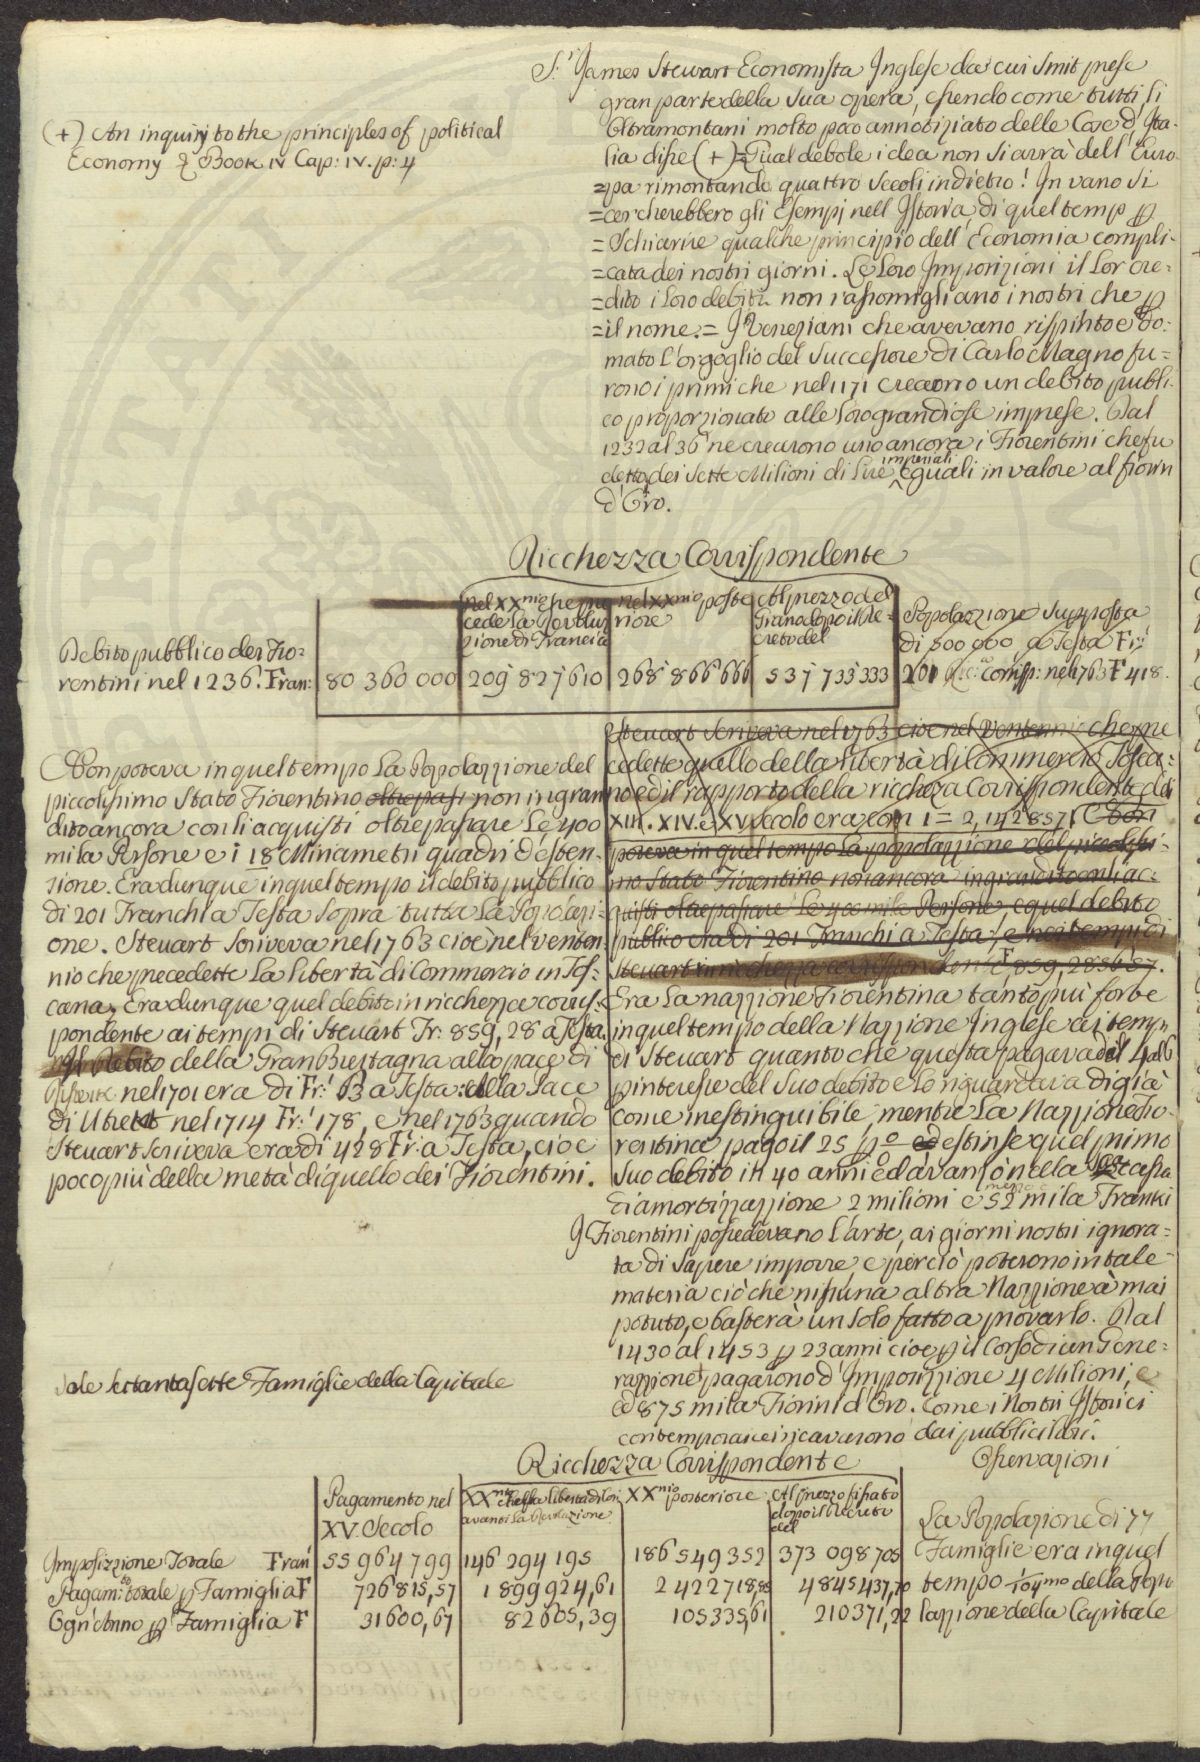 S.r James Steuart Economista Inglese da cui Smit prese
gran parte della sua opera, essendo come tutti li
Oltramontani molto poco annotiziato delle Cose d'Ita-
lia disse (+) = Qual debole idea non si avrà dell'Euro-
=pa rimontando quattro secoli indietro! In vano si
=cercherebbero gli Esempj nell'Istoria di quel temp p
=Schiarire qualche principio dell'Economia compli-
=cata dei nostri giorni. Le loro Imposizioni il lor cre=
=dito i loro debiti non rassomigliano i nostri che p
=il nome.= I Veneziani che avevano rispinto e do:
mato l'orgoglio del Successore di Carlo Magno fu=
rono i primi che nel 1171 crearono un debito publi-
co proporzionato alle loro grandiose imprese. Dal
1232 al 36 ne crearono uno ancora i Fiorentini che fu
detto dei sette Milioni di lire imperiali eguali in valore al fiorin
d'Oro.
(+) An inquiry to the principles of political
Economy & Book IV Cap: IV. p: 4
Ricchezza Corrispondente
nel XXnio che pre
cede la Revolu
zione di Francia
nel XXnio poste
riore
Al prezzo del
Grano dopo il De-
creto del
Popolazzione supposta
di 400 000 a Testa Fr:
201 Ric: corrisp: nel 1763 F 418.
Debito pubblico dei Fio=
rentini nel 1236. Fran: 80 360 000 209 827 610 268 866 666 537 733 333
Non poteva in quel tempo la Popolazzione del
piccolissimo Stato Fiorentino oltrepass non ingran
dito ancora con li acquisti oltrepassare le 400
mila Persone e i 18 Miriametri quadri d'esten-
sione. Era dunque in quel tempo il debito pubblico
di 201 Franchi a Testa sopra tutta la Popolazi-
one. Steuart scriveva nel 1763 cioè nel venten-
nio che precedette la libertà di Commercio in Tos-
cana, Era dunque quel debito in ricchezza corris-
pondente ai tempi di Steuart Fr: 859,28 a Testa.
Il Debito della Gran Brettagna alla pace di
nel 1701 era di Fr: 63 a Testa: alla Pace
di Utrett nel 1714 Fr: 178, e nel 1763 quando
Steuart scriveva era di 428 Fr: a Testa, cioè
poco più della metà di quello dei Fiorentini.
Steuart scriveva nel 1763 cioè nel Ventennio che pre
cedette quello della libertà di Commercio Tosca=
no ed il rapporto della ricchezza Corrispondente del
XIII. XIV. e XV. secolo era com 1 = 2,142857. Non
poteva in quel tempo la popolazzione del picolissi-
mo Stato Fiorentino non ancora ingrandito con li ac-
quisti oltrepassare le 400 mila Persone, e quel debito
publico era di 201 Franchi a Testa, e nei tempi di
Steuart in ricchezza corrispondente F. 859,285657.
Era la nazzione Fiorentina tanto più forte
in quel tempo della Nazzione Inglese ai temp
di Steuart quanto che questa pagava del 4 al 6
p interesse del suo debito e lo riguardava di già
come inestinguibile, mentre la Nazzione Fio-
rentina pagò il 25 p% ed estinse quel primo
suo debito in 40 anni ed avanzò nella sua cassa
di amortizzazzione 2 milioni e mezzo e 52 mila Franki
I Fiorentini possedevano l'arte, ai giorni nostri ignora=
ta di sapere imporre e perciò poterono in tale
materia ciò che nissuna altra Nazzione à mai
potuto, e basterà un solo fatto a provarlo. Dal
1430 al 1453 p 23 anni cioè p il Corso di un Gene=
razzione pagarono d'Imposizzione 4 Milioni, e
ed 875 mila Fiorini d'Oro. Come i Nostri Istorici
contemporanei ricavarono dai pubblici libri.
Sole settantasette Famiglie della Capitale
Ricchezza Corrispondente
Osservazioni
Pagamento nel
XV. Secolo
XXnio della libertà di Com
avanti la Revoluzione
XXnio posteriore
Al prezzo fissato
dopo il Decreto
del
La Popolazione di 77
Famiglie era in quel
tempo 1/104mo della Popo
lazzione della Capitale
Imposizzione Totale Fran 55 964 799 146 294 195 186 549 352 373 098 705
Pagam:to totale p Famiglia F 726 815,57 1 899 924,61 2 422 718,88 4 845 437,70
Ogn'Anno p Famiglia F 31600,67 82605,39 105335,61 210371,22